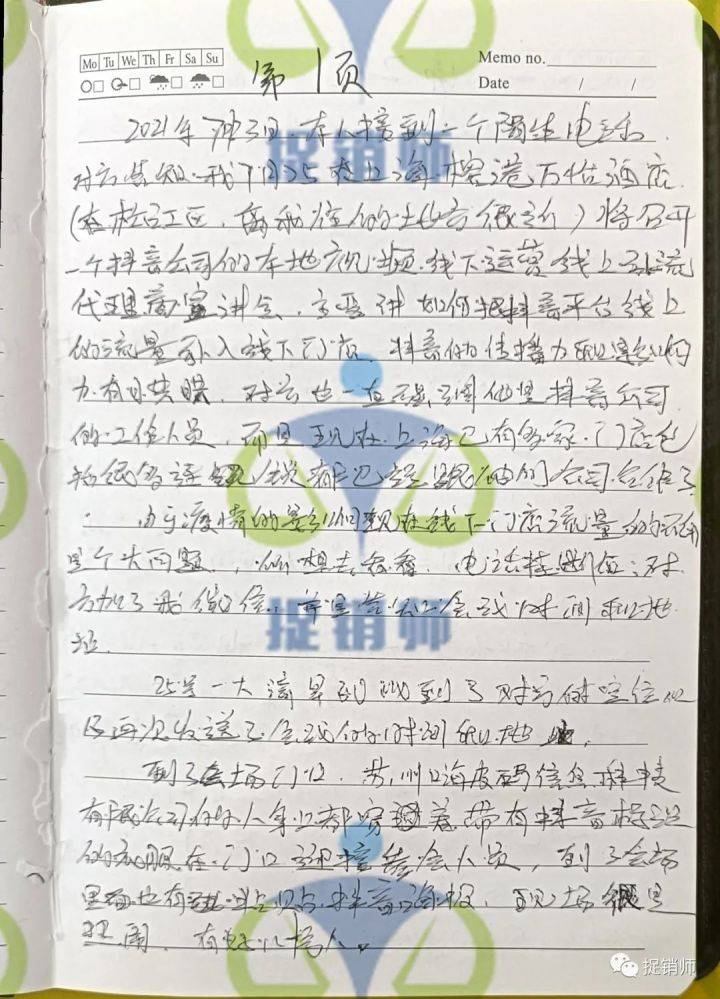 Mo Tu We Th Fr Sa Su
Memo no.
Date / /
第1页
2021年7月23日,本人接到一个陌生电话,
对方告知我7月25在上海 万怡酒店
(在松江区,离我住的地方很近)将召开
一个抖音公司的本地 视频线下运营线上引流
代理商宣讲会,主要讲如何把抖音平台线上
的流量引入线下门店,抖音的传播力和影响
力有目共睹,对方也一直强调他是抖音公司
的工作人员,而且现在上海已有多家门店包
括很多连锁都已经跟他们公司合作了
由于疫情的影响现在线下门店流量的
是个大问题,所以想去看看,电话挂断后,对
方加了我微信,并且告知了会议时间和地
址。
25号一大清早我收到了对方的定位他
又再次发送了会议的时间和地址。
到了会场门口,苏州海度码信息科技
有限公司的人身上都穿着带有抖音标识
的衣服在门口迎接参会人员,到了会场
里面也有 抖音海报,现场很是
有 几十人。
捉销师
捉销师
捉销师